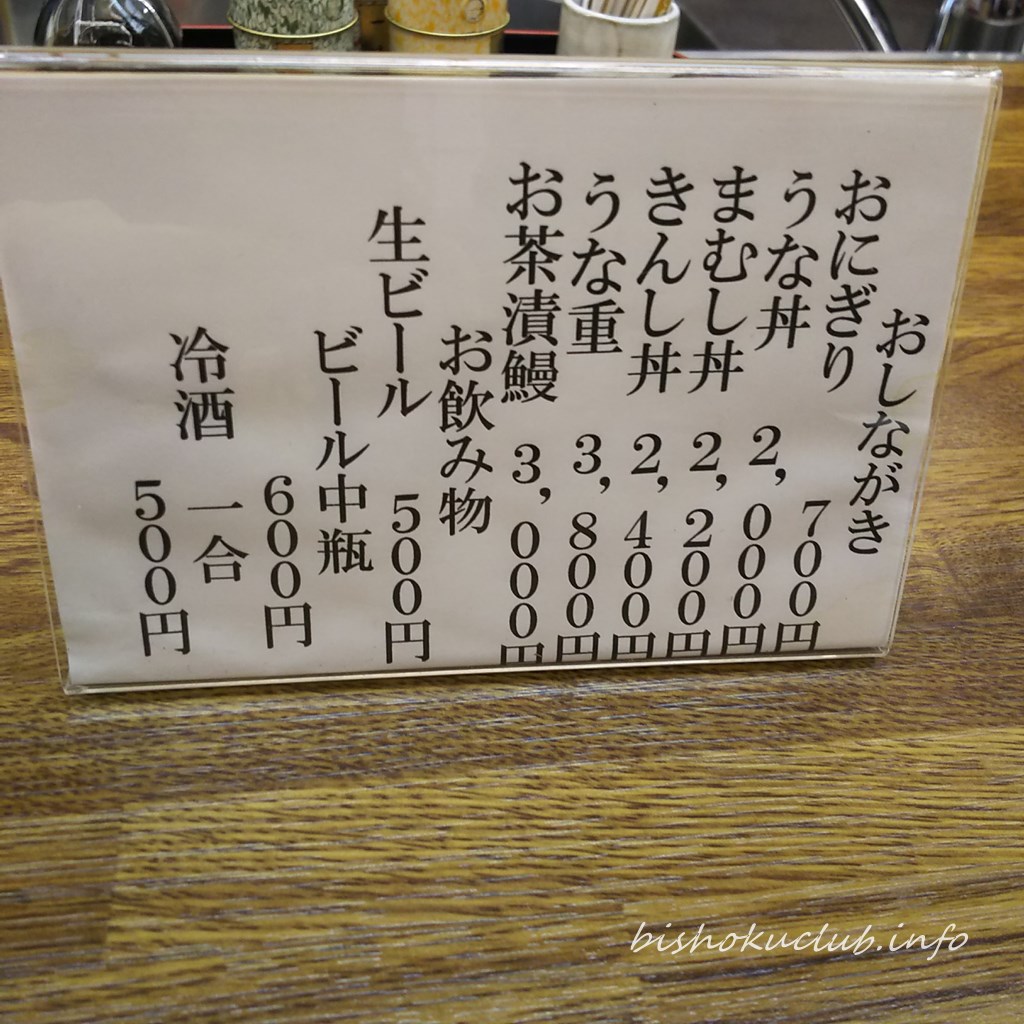 おしながき
おにぎり 700円
うな丼 2,000円
まむし丼 2,200円
きんし丼 2,400円
うな重 3,800円
お茶漬鰻 3,000円
お飲み物
生ビール 500円
ビール中瓶
600円
冷酒 一合
500円
bishokuclub.info